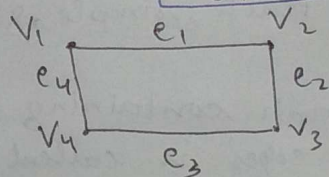 V₁ e₁ V₂
e₄ e₂
V₄ e₃ V₃